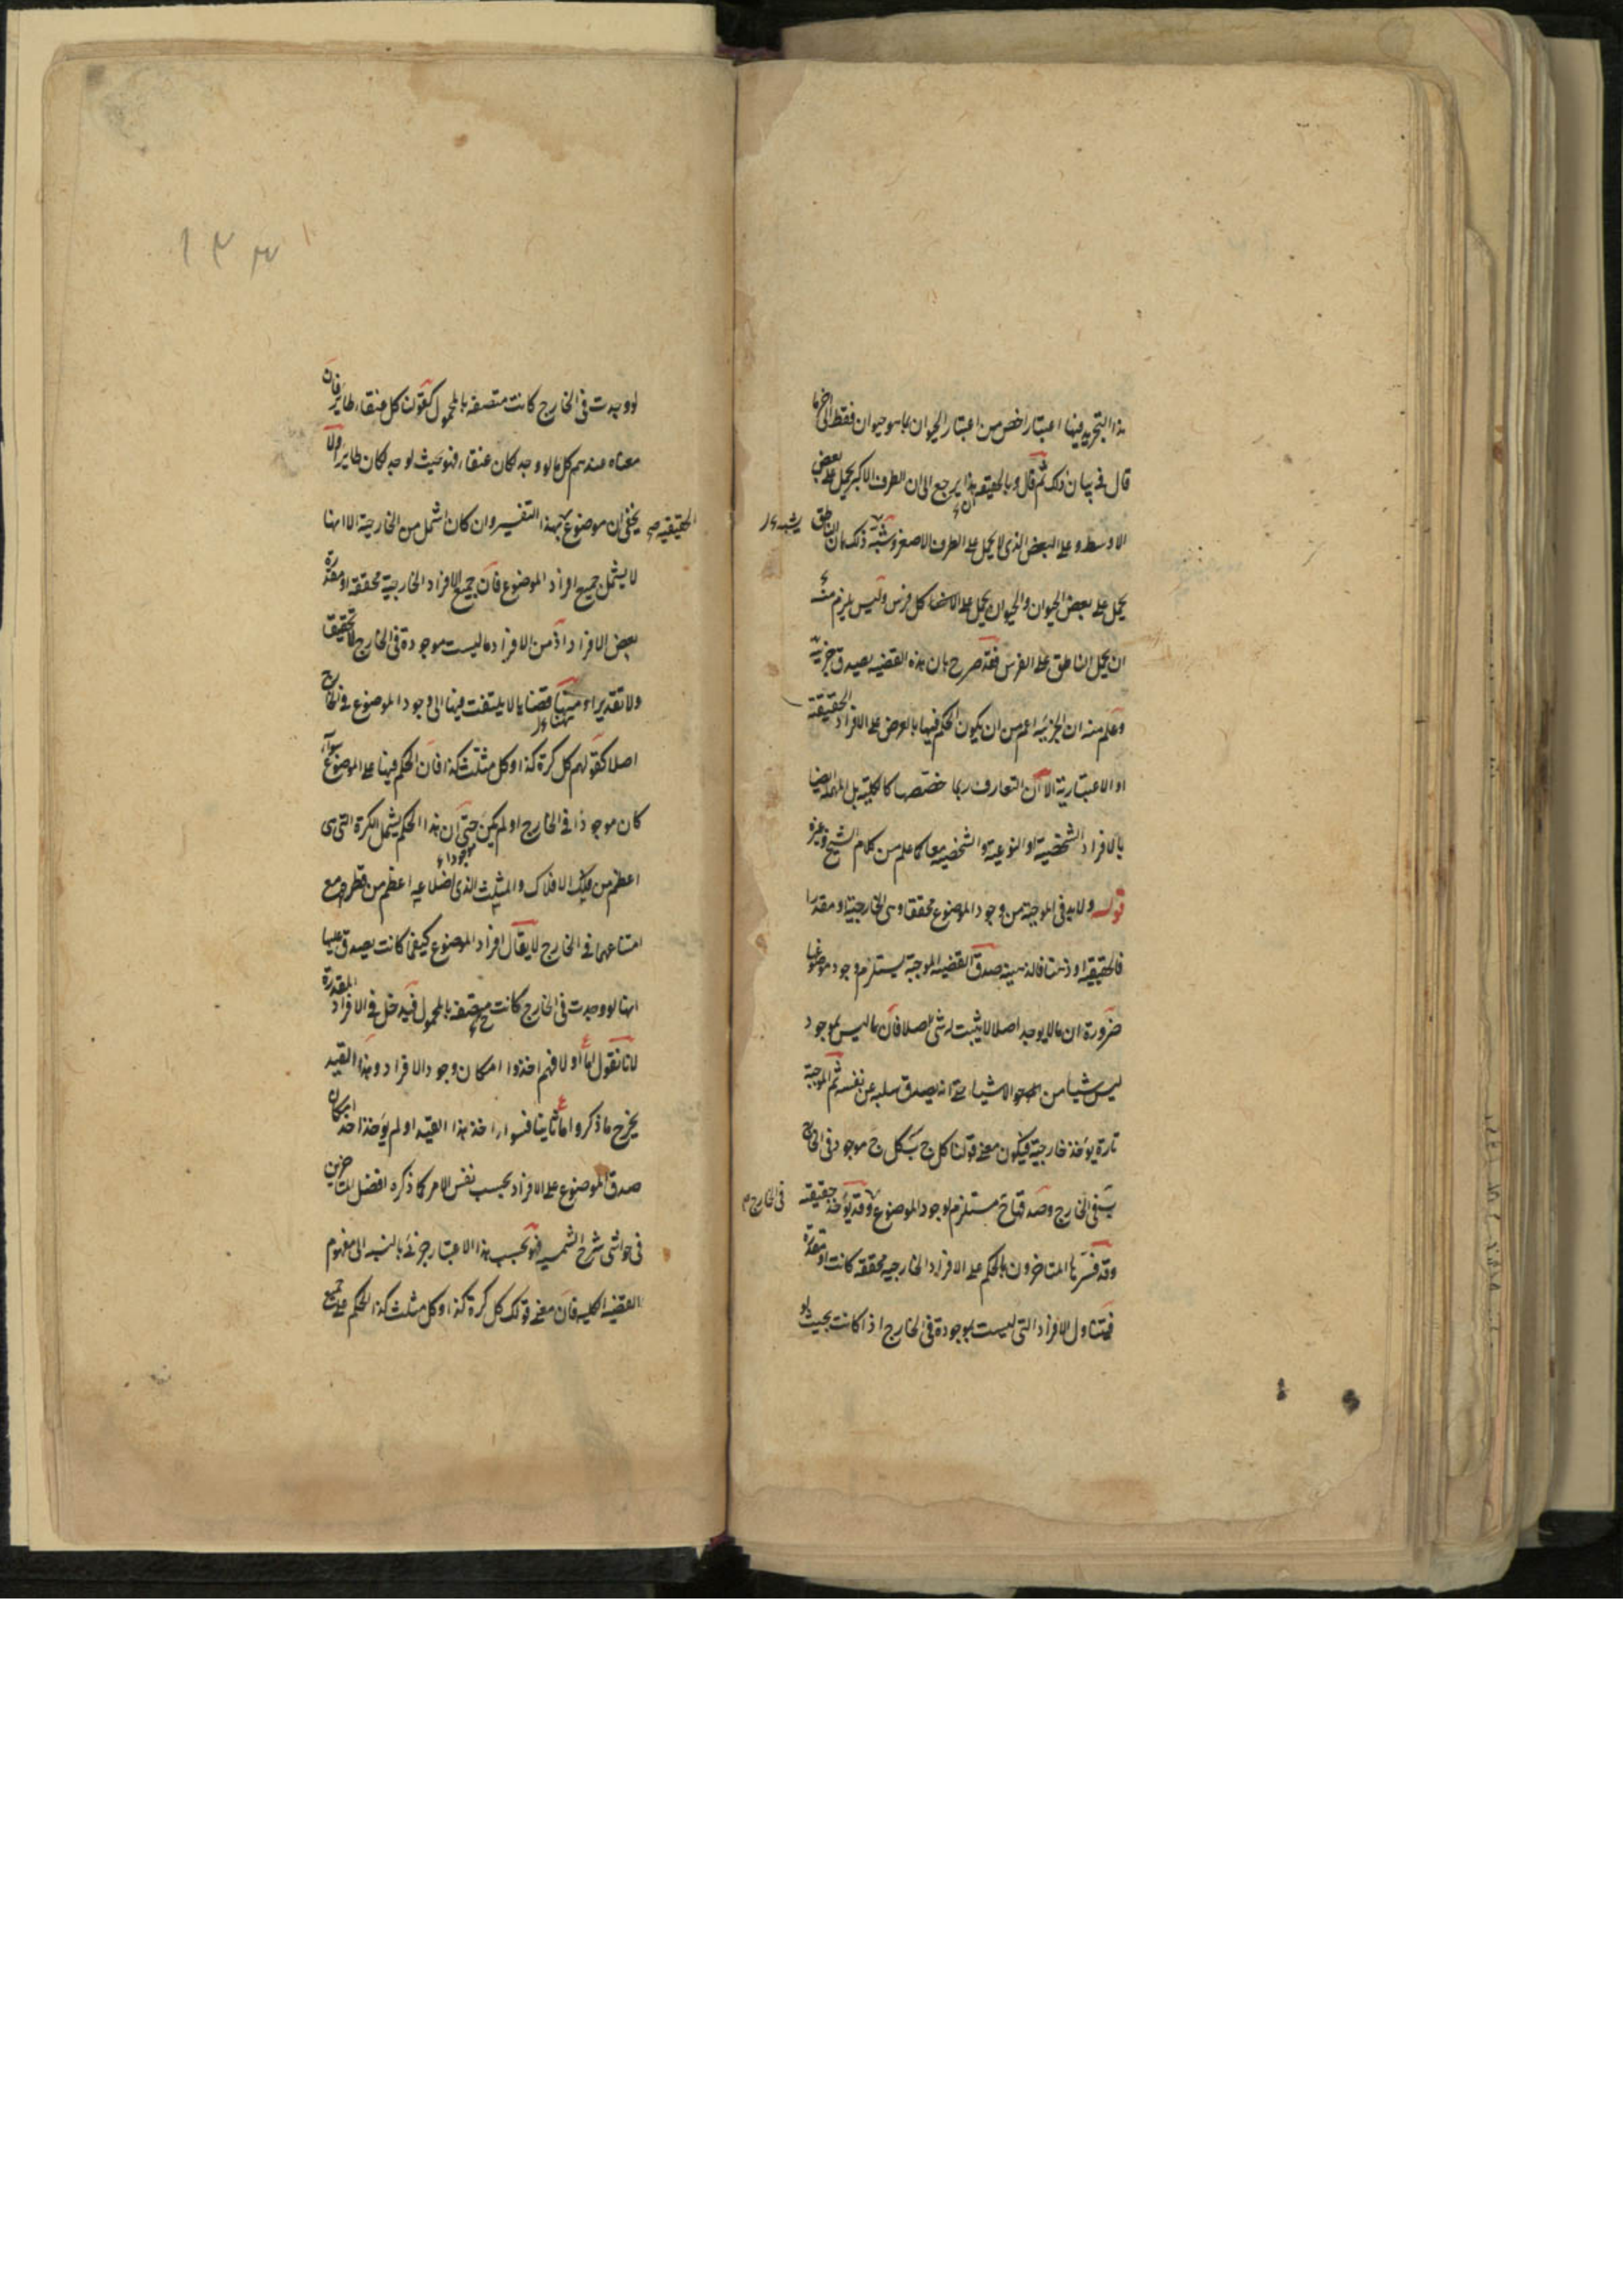 هذا التجريد فيها اعتبار اخص من اعتبار الحيوان بما هو حيوان فقط الى اخر ما
قال في بيان ذلك ثم قال وبالحقيقة هذا يرجع الى ان الطرف الاكبر يحمل على بعض
الاوسط وعلى البعض الذى لا يحمل على الطرف الاصغر وشبه ذلك بان الناطق
يحمل على بعض الحيوان والحيوان يحمل على كل فرس وليس يلزم منه
ان يحمل الناطق على الفرس فقد صرح بان هذه القضية يصدق جزئية
وعلم منه ان الجزئية اعم من ان يكون الحكم فيها بالعرض على الافراد الحقيقية
او الاعتبارية الا ان التعارف ربما خصصها كالكلية بل المهملة ايضا
بالافراد الشخصية او النوعية والشخصية معا كما علم من كلام الشيخ وغيره
قوله ولا بد في الموجبة من وجود الموضوع محققا وهى الخارجية او مقدرا
فالحقيقية او ذهنا فالذهنية صدق القضية الموجبة يستلزم وجود موضوعها
ضرورة ان ما لا يوجد اصلا لا يثبت له شئ اصلا فان ما ليس بموجود
ليس شيئا من الاشياء حتى انه يصدق سلبه عن نفسه ثم الموجبة
تارة يؤخذ خارجية فيكون معنى قولنا كل ج ب كل ج موجود في الخارج
ب في الخارج وصدقها ح مستلزم لوجود الموضوع وقد يؤخذ حقيقية
في الخارج
وقد فسرها المتاخرون بالحكم على الافراد الخارجية محققة كانت او مقدرة
فيتناول الافراد التى ليست بموجودة في الخارج اذا كانت بحيث
١٣٣
لو وجدت في الخارج كانت متصفة بالمحمول كقولنا كل عنقاء طاير فان
معناه عندهم كل ما لو وجد كان عنقاء فهو بحيث لو وجد كان طايرا ولا
يخفى ان موضوع بهذا التفسير وان كان اشمل من الخارجية الا انها
الحقيقية
لا يشمل جميع افراد الموضوع فان جميع الافراد الخارجية محققة او مقدرة
بعض الافراد اذ من الافراد ما ليست موجودة في الخارج لا تحقيقا
ولا تقديرا وههنا قضايا لا يلتفت فيها الى وجود الموضوع في الخارج
اصلا كقولهم كل كرة كذا وكل مثلث كذا فان الحكم فيها على الموضوع سواء
كان موجودا في الخارج او لم يكن حتى ان هذا الحكم يشمل الكرة التى هى
اعظم من فلك الافلاك والمثلث الذى اضلاعه اعظم من قطره مع
امتناعهما في الخارج لا يقال افراد الموضوع كيفما كانت يصدق عليها
انها لو وجدت في الخارج كانت متصفة بالمحمول فيدخل في الافراد المقدرة
لانا نقول اما اولا فهم اخذوا امكان وجود الافراد وهذا القيد
يخرج ما ذكروا اما ثانيا فسواء اخذ هذا القيد او لم يؤخذ اخذ امكان
صدق الموضوع على الافراد بحسب نفس الامر كما ذكره افضل المتاخرين
في حواشى شرح الشمسية فهو بحسب هذا الاعتبار جزئى بالنسبة الى مفهوم
القضية الكلية فان معنى قولك كل كرة كذا وكل مثلث كذا الحكم على جميع